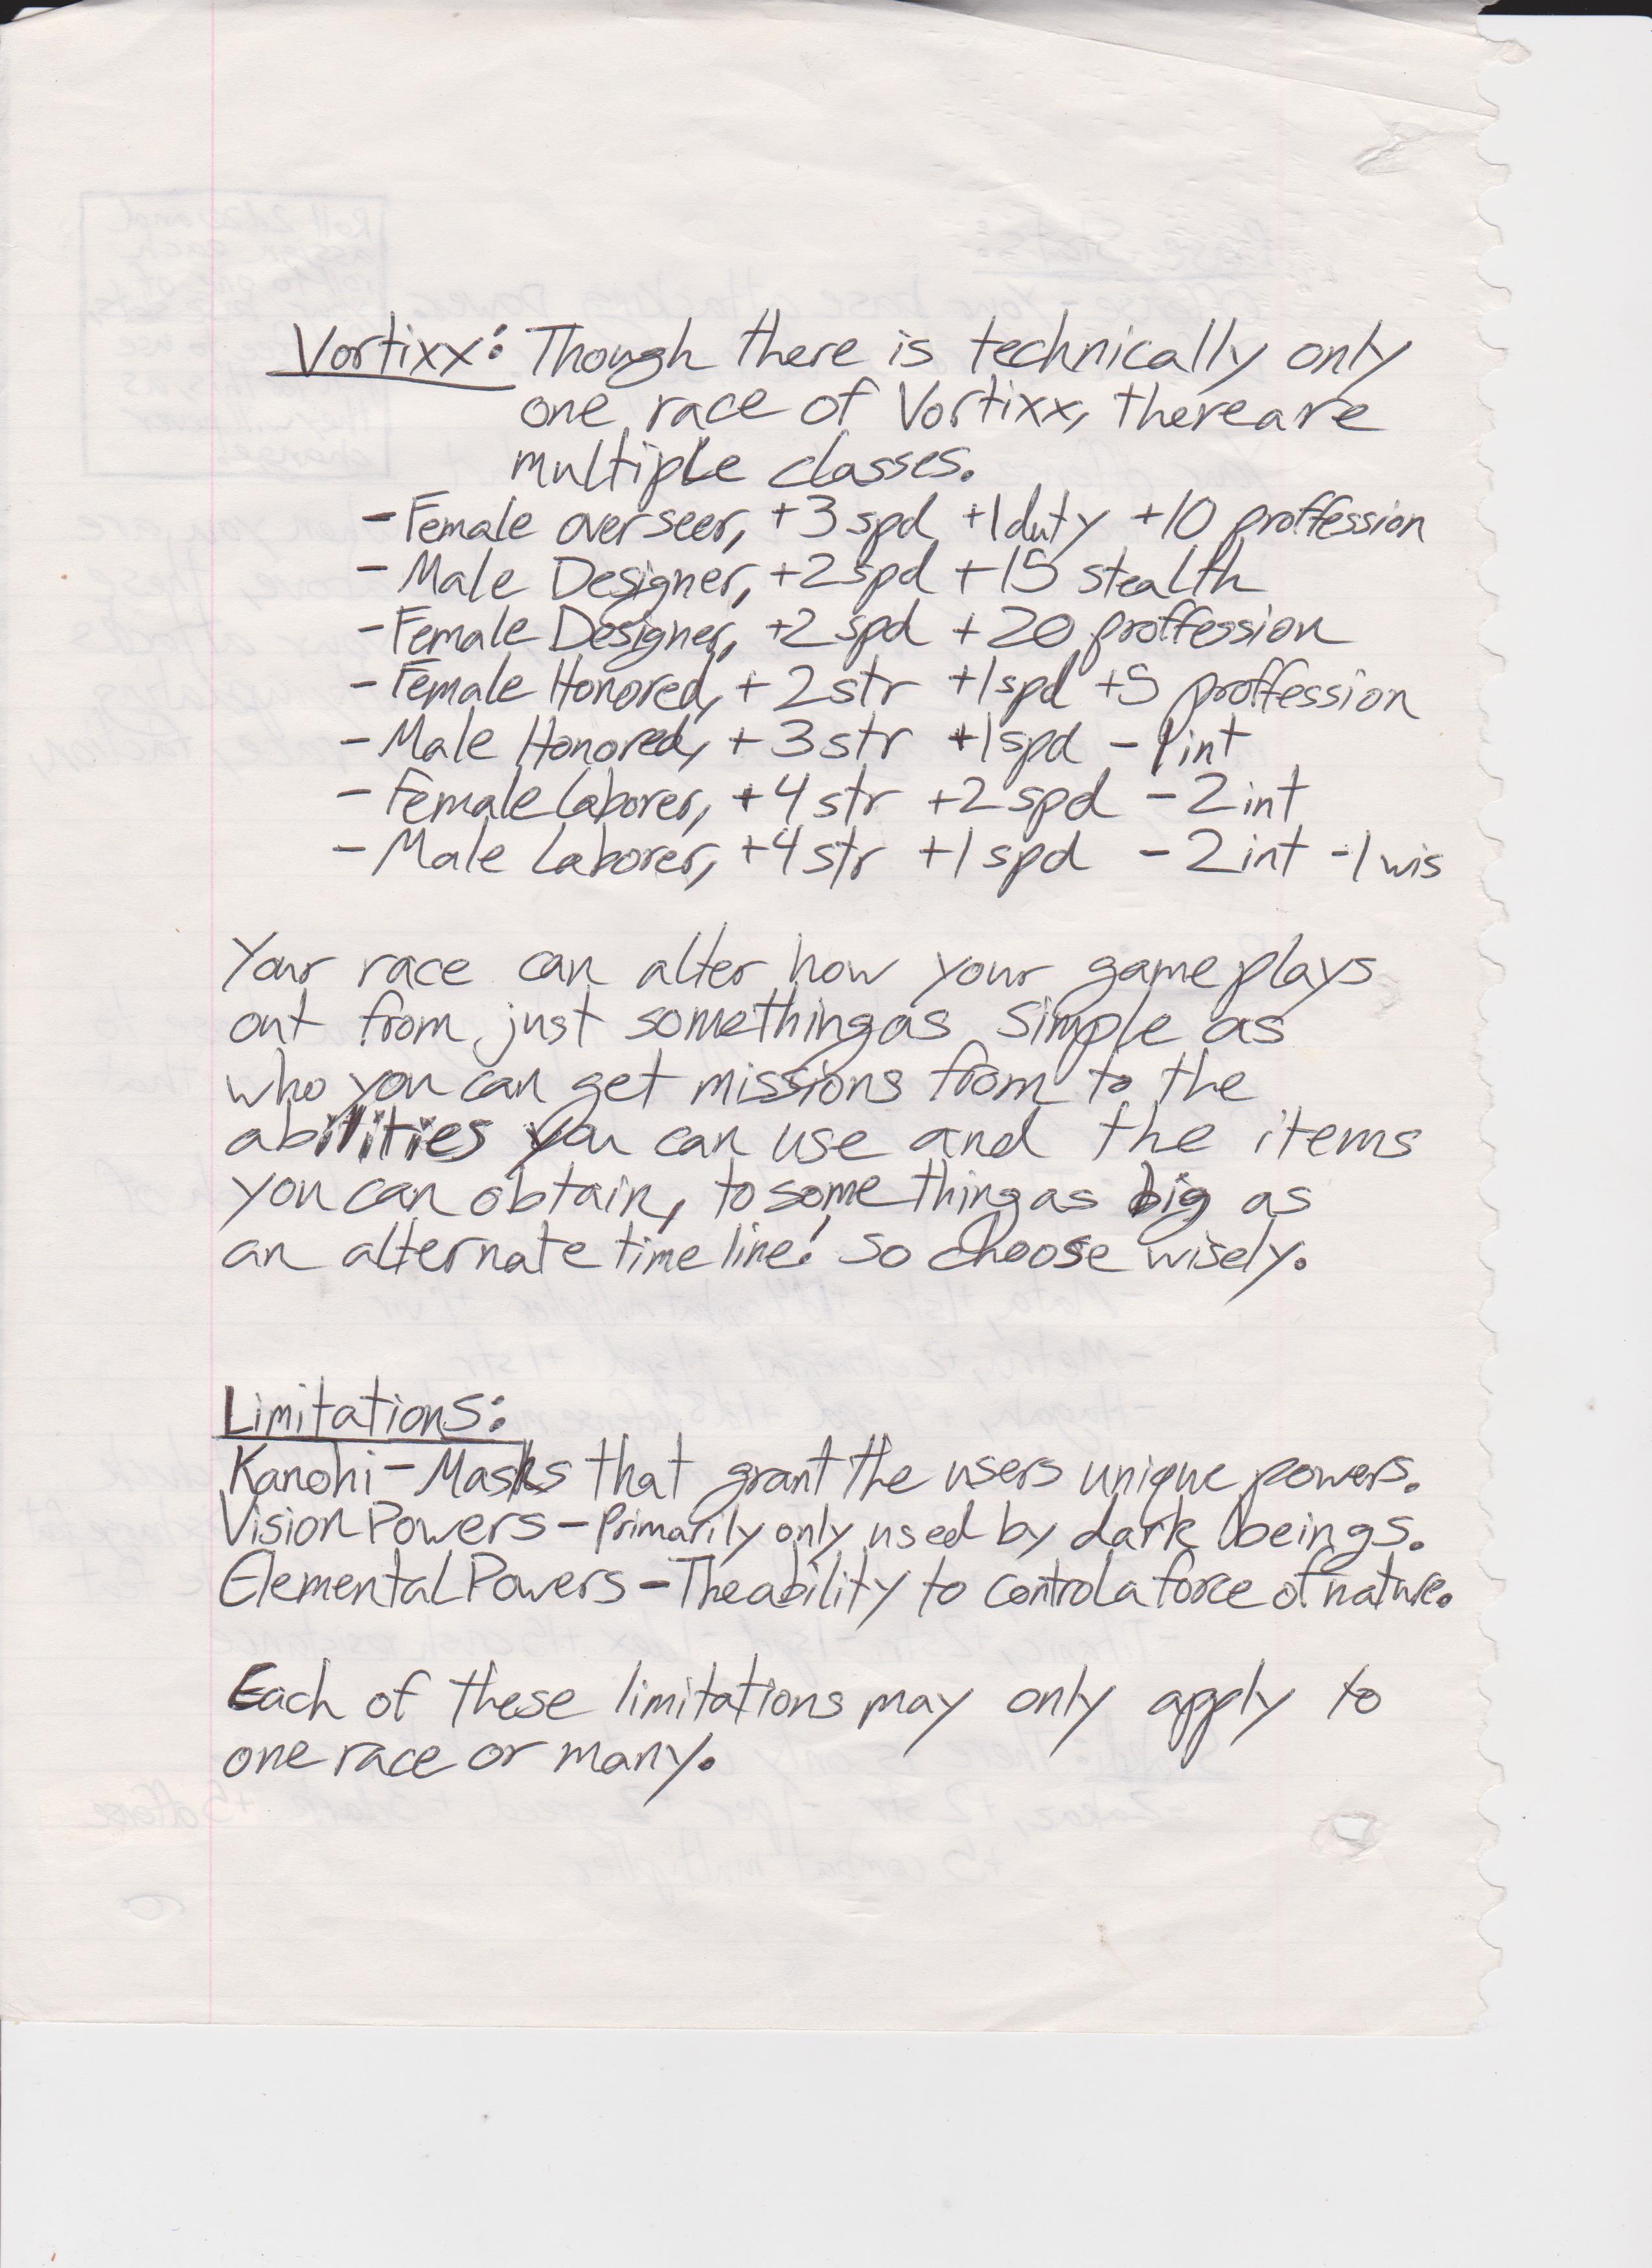 Vortixx: Though there is technically only
one race of Vortixx, there are
multiple classes.
- Female overseer, +3 spd +1 duty +10 proffession
- Male Designer, +2 spd +15 stealth
- Female Designer, +2 spd +20 proffession
- Female Honored, +2 str +1 spd +5 proffession
- Male Honored, +3 str +1 spd -1 int
- Female Laborer, +4 str +2 spd -2 int
- Male Laborer, +4 str +1 spd -2 int -1 wis
Your race can alter how your game plays
out from just something as simple as
who you can get missions from to the
abilities you can use and the items
you can obtain, to something as big as
an alternate time line! So choose wisely.
Limitations:
Kanohi - Masks that grant the users unique powers.
Vision Powers - Primarily only used by dark beings.
Elemental Powers - The ability to control a force of nature.
Each of these limitations may only apply to
one race or many.